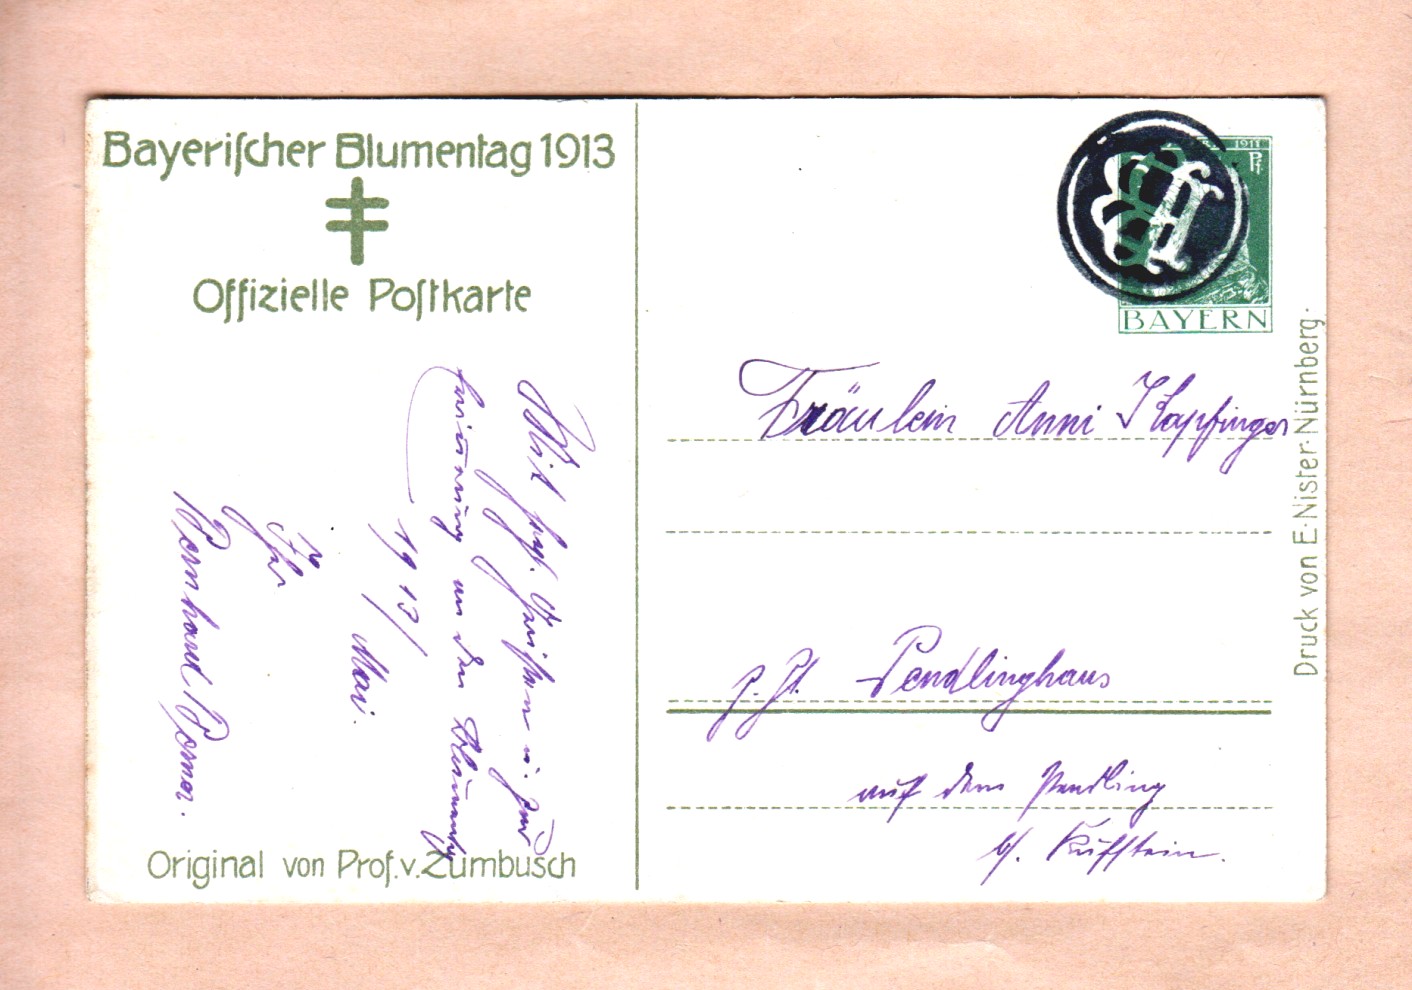 Bayerischer Blumentag 1913
Offizielle Postkarte
Mit frdl. Grüßen u. zur
Erinnerung an den Blumentag
1913/
Mai.
Ihr
Bernhard
Original von Prof. v. Zumbusch
1911
Pf.
BAYERN
Fräulein Anni Klapfinger
p. Pendlinghaus
auf dem Pendling
b/. Kufstein.
Druck von E. Nister Nürnberg.